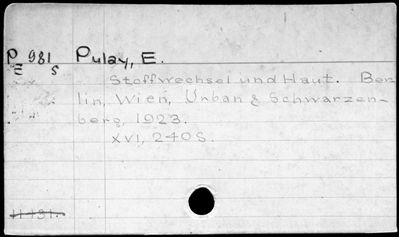 P 981 Pulay, E.
E s
Stoffwechsel und Haut. Ber
lin, Wien, Urban & Schwarzen-
berg, 1923.
XVI, 240 S.